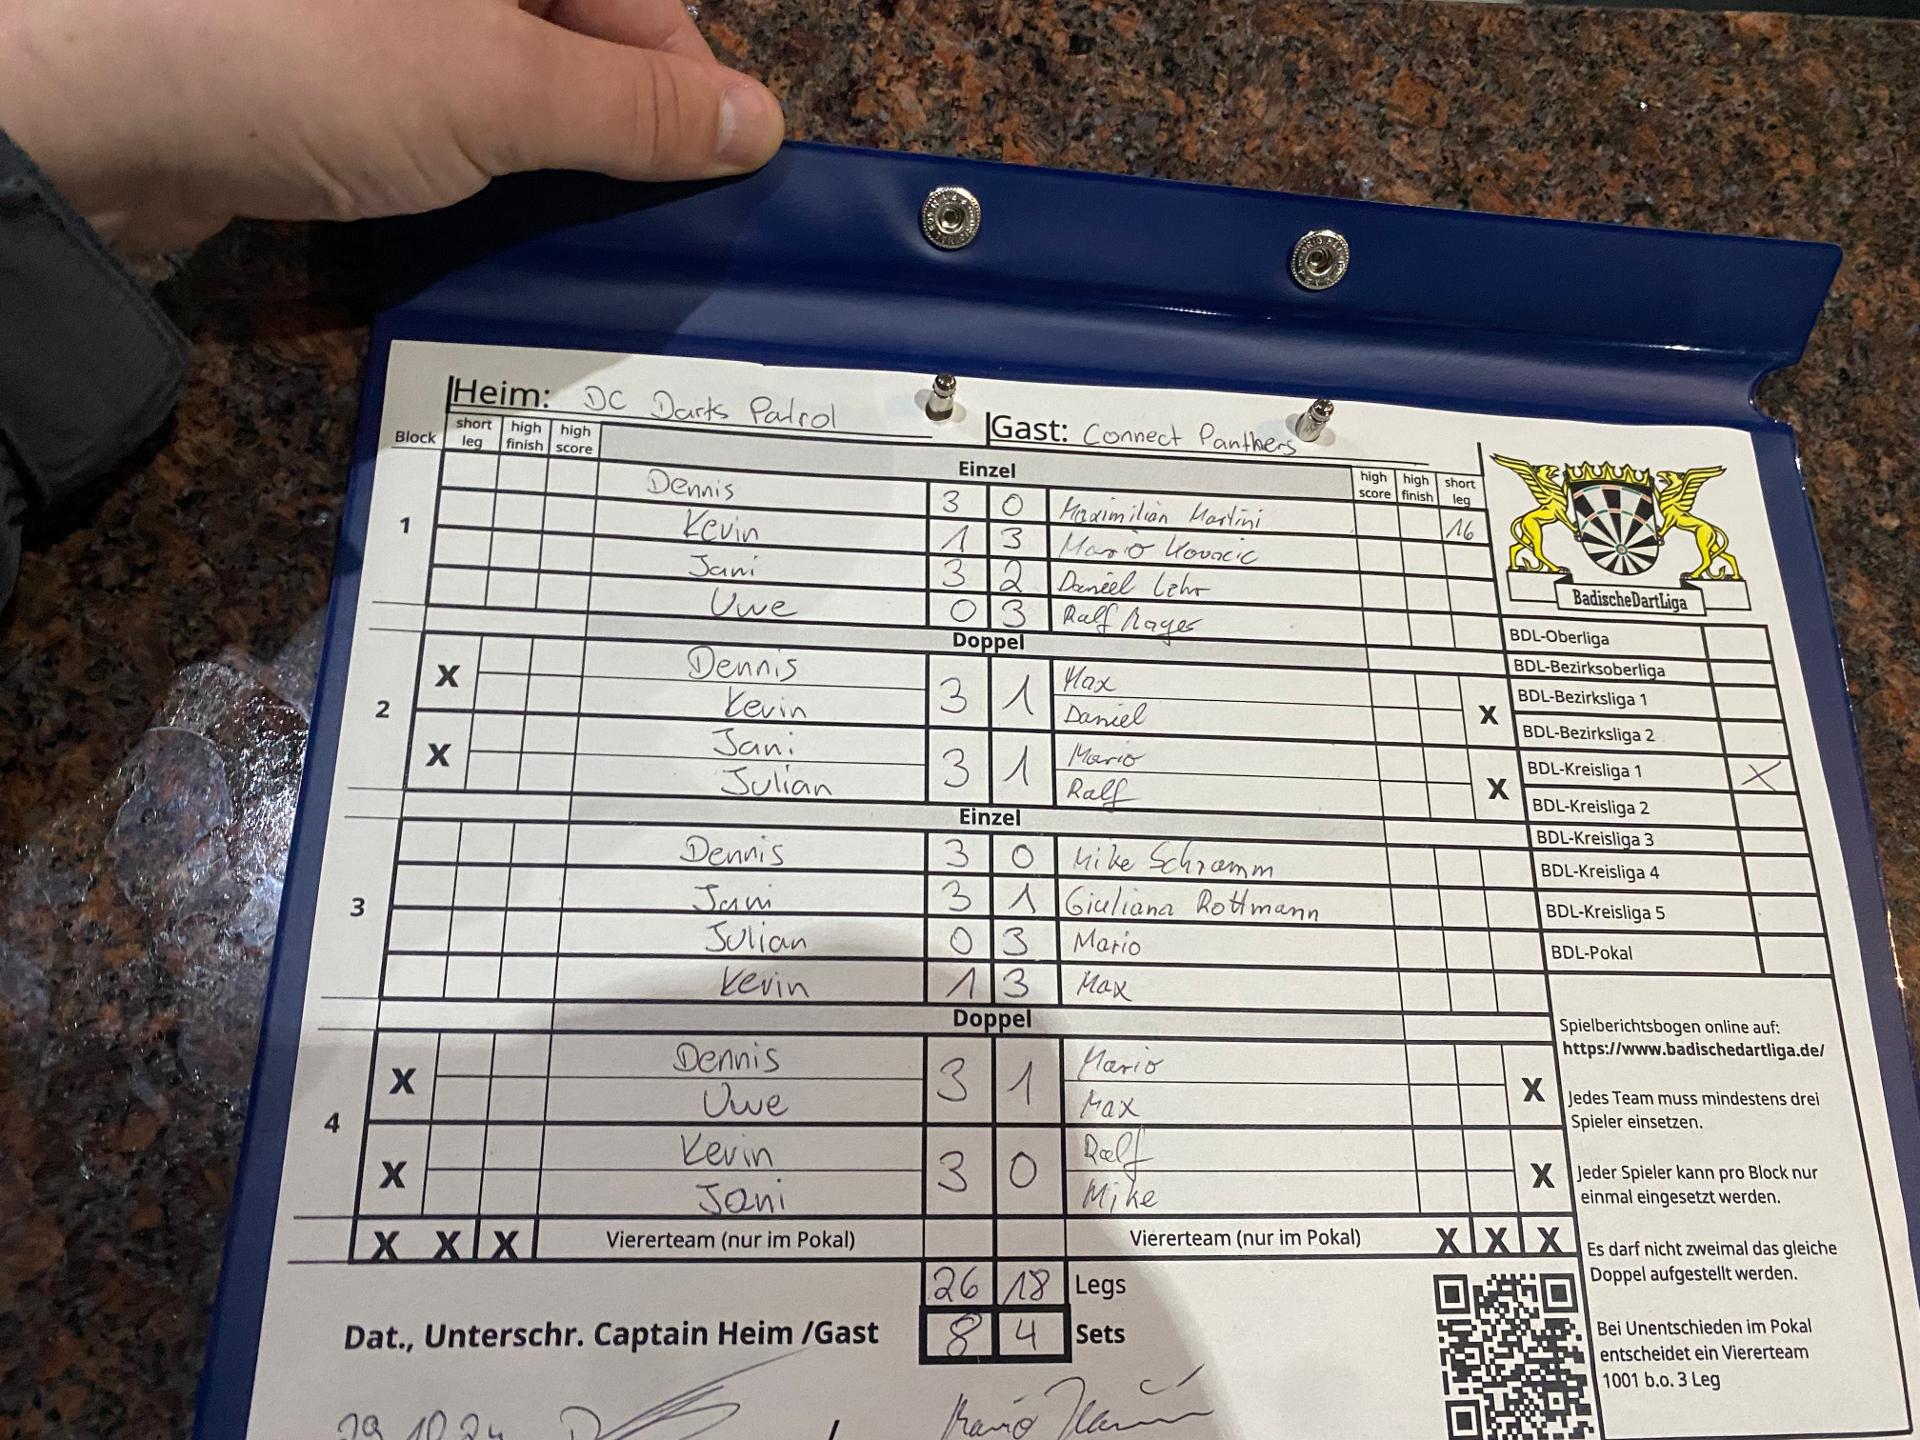 Heim: DC Darts Patrol Gast: Connect Panthers
Block short leg high finish high score Einzel high score high finish short leg
1
Dennis 3 0 Maximilian Martini 16
Kevin 1 3 Mario Kovacic
Jani 3 2 Daniel Lehr
Uwe 0 3 Ralf
Doppel
2
X Dennis 3 1 Max X
Kevin Daniel
X Jani 3 1 Mario X
Julian Ralf
Einzel
3
Dennis 3 0 Mike Schramm
Jani 3 1 Giuliana Rottmann
Julian 0 3 Mario
Kevin 1 3 Max
Doppel
4
X Dennis 3 1 Mario X
Uwe Max
X Kevin 3 0 Ralf X
Jani Mike
X X X Viererteam (nur im Pokal) Viererteam (nur im Pokal) X X X
26 18 Legs
Dat., Unterschr. Captain Heim /Gast 8 4 Sets
29.10.24 /
BadischeDartLiga
BDL-Oberliga
BDL-Bezirksoberliga
BDL-Bezirksliga 1
BDL-Bezirksliga 2
BDL-Kreisliga 1 X
BDL-Kreisliga 2
BDL-Kreisliga 3
BDL-Kreisliga 4
BDL-Kreisliga 5
BDL-Pokal
Spielberichtsbogen online auf:
https://www.badischedartliga.de/
Jedes Team muss mindestens drei
Spieler einsetzen.
Jeder Spieler kann pro Block nur
einmal eingesetzt werden.
Es darf nicht zweimal das gleiche
Doppel aufgestellt werden.
Bei Unentschieden im Pokal
entscheidet ein Viererteam
1001 b.o. 3 Leg